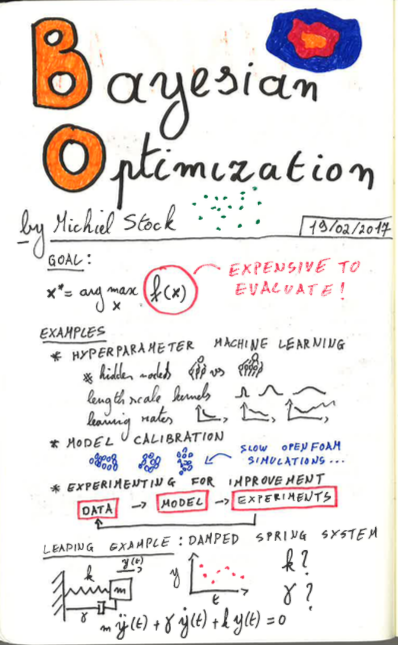 Bayesian
Optimization
by Michiel Stock
19/02/2017
GOAL:
x* = arg max f(x)
x
EXPENSIVE TO
EVALUATE!
EXAMPLES
* HYPERPARAMETER MACHINE LEARNING
* hidden nodes vs
length scale kernels
learning rates
* MODEL CALIBRATION
SLOW OPENFOAM
SIMULATIONS...
* EXPERIMENTING FOR IMPROVEMENT
DATA → MODEL → EXPERIMENTS
LEADING EXAMPLE: DAMPED SPRING SYSTEM
y(t)
k
m
γ
y
t
k?
γ?
m ÿ(t) + γ ẏ(t) + k y(t) = 0